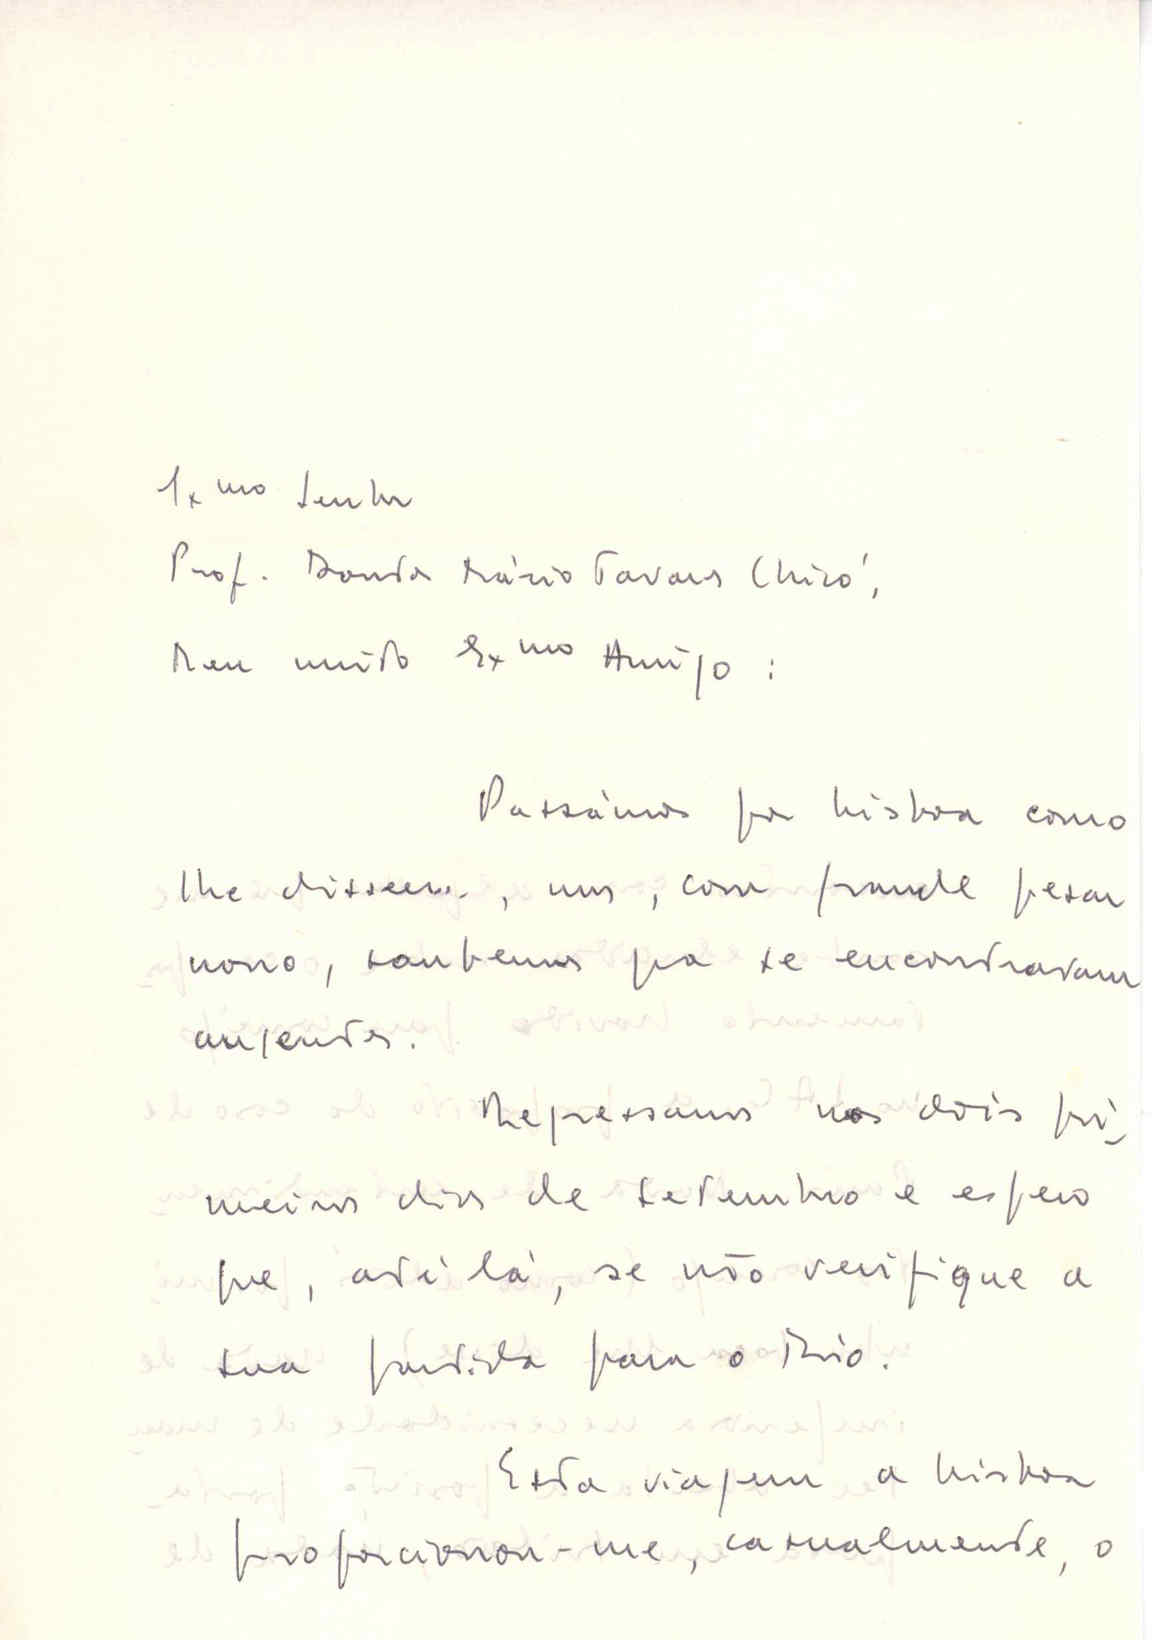 Exmo Senhor
Prof. Doutor Mário Tavares Chicó,
Meu muito Exmo Amigo:
Passámos por Lisboa como
lhe dissera, mas, com grande pesar
nosso, soubemos que se encontravam
ausentes.
Regressamos nos dois pri-
meiros dias de Setembro e espero
que, até lá, se não verifique a
sua partida para o Rio.
Esta viagem a Lisboa
proporcionou-me, casualmente, o